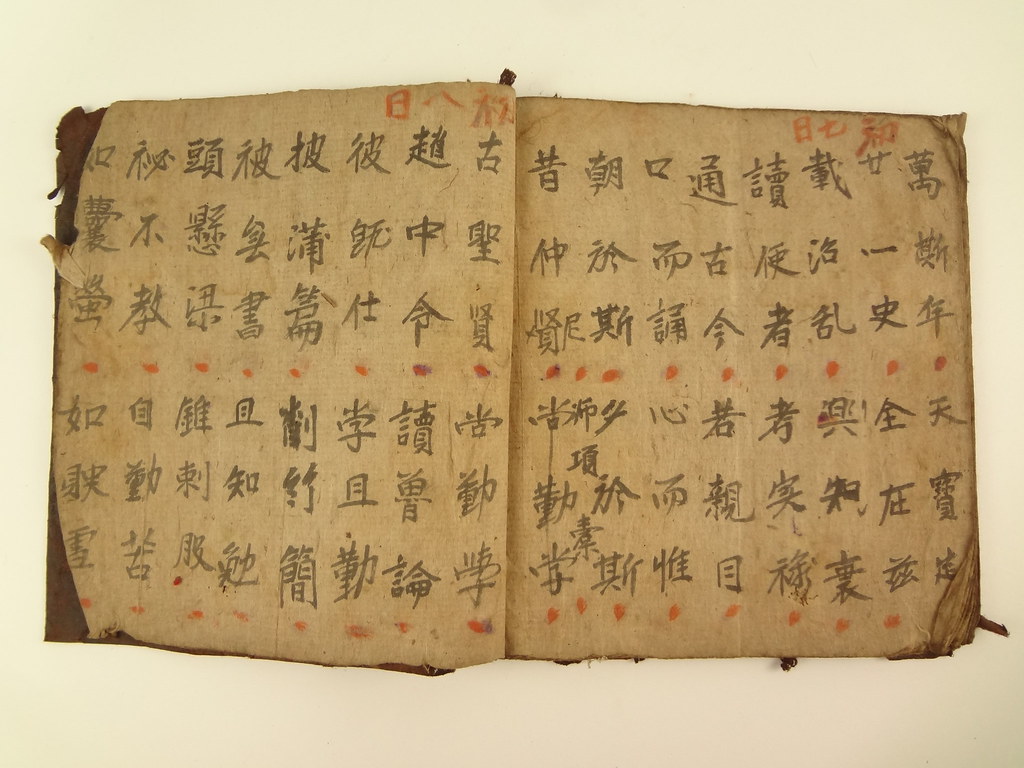 初七日
萬斯年天寶
廿一史全在兹
載治乱興知衰
讀便者考实祿
通古今若親目
口而誦心而惟
朝於斯夕於斯
尼師項橐
昔仲賢尚勤学
初八日
古聖賢尚勤学
趙中令讀魯論
彼既仕学且勤
披蒲篇削竹簡
被無書且知勉
頭懸梁錐刺股
祕不教自勤苦
如囊螢如映雪